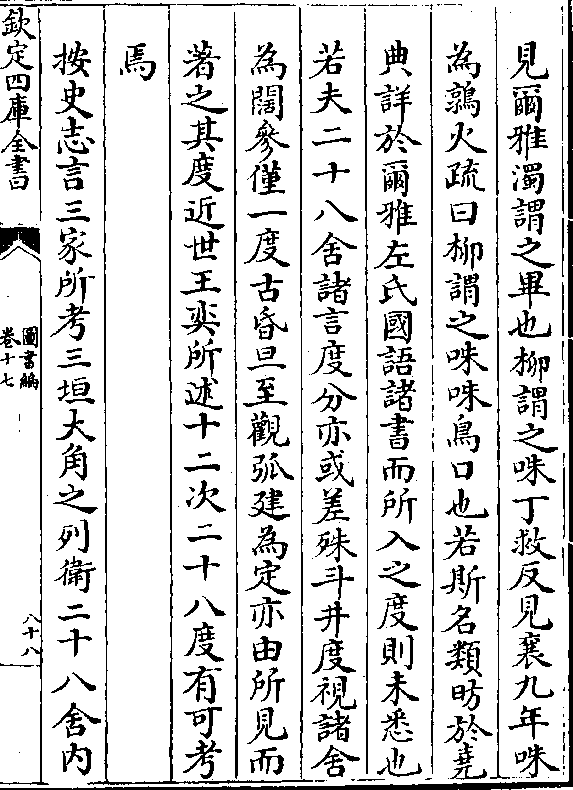 見爾雅濁謂之畢也柳謂之咮丁救反見襄九年咮
為鶉火疏曰柳謂之咮咮鳥口也若斯名類昉於堯
典詳於爾雅左氏國語諸書而所入之度則未悉也
若夫二十八舍諸言度分亦或差殊斗井度視諸舍
為闊參僅一度古昏旦至觀弧建為定亦由所見而
著之其度近世王奕所述十二次二十八度有可考
焉
按史志言三家所考三垣大角之列衛二十八舍内
欽定四庫全書
圖書編
卷十七
八十八